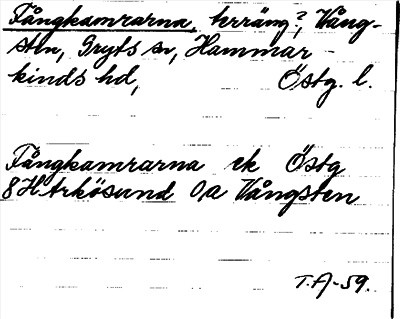 Fångkamrarna, terräng?, Vång-
sten, Gryts sn, Hammar-
kinds hd, Östg. l.
Fångkamrarna ek Östg
8H Arkösund 0,a Vångsten
T.A-59.